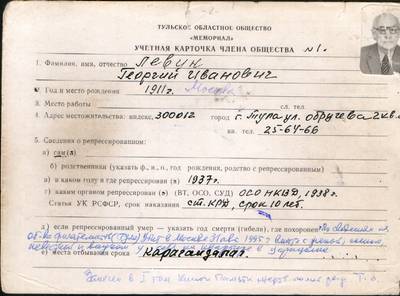 ТУЛЬСКОЕ ОБЛАСТНОЕ ОБЩЕСТВО
«МЕМОРИАЛ»
УЧЕТНАЯ КАРТОЧКА ЧЛЕНА ОБЩЕСТВА №1.
1. Фамилия, имя, отчество Левин
Георгий Иванович
2. Год и место рождения 1911г. Москва
3. Место работы сл. тел.
4. Адрес местожительства: индекс, 300012 город г. Тула ул. Обручева
кв. тел. 25-64-66
5. Сведения о репрессированном:
а) сам(а)
б) родственники (указать ф., и., о., год рождения, родство с репрессированным)
в) в каком году и где репрессирован (а) 1937г.
г) каким органом репрессирован (а) (ВТ, ОСО, СУД) ОСО НКВД, 1938г.
Статья УК РСФСР, срок наказания ст. КРД, срок 10 лет.
д) если репрессированный умер — указать год смерти (гибели), где похоронен
в Москве 1995г.
е) место отбывания срока Карагандалаг.
в I том Книги Памяти жертв полит. репр.